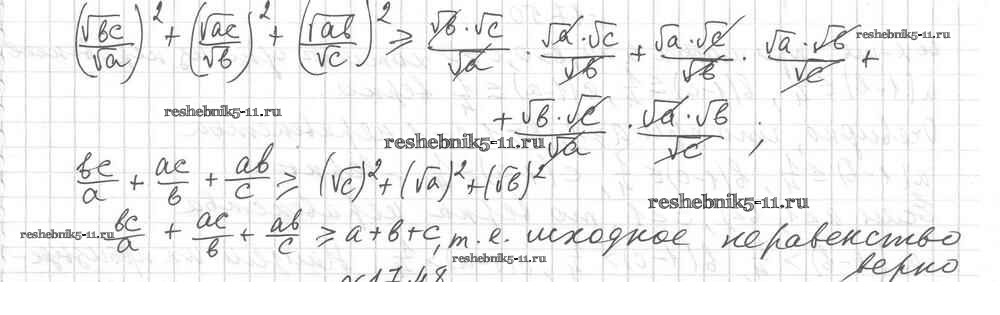 (√bc/√a)² + (√ac/√b)² + (√ab/√c)² ≥ √b·√c/√a · √a·√c/√b + √a·√c/√b · √a·√b/√c +
reshebnik5-11.ru
reshebnik5-11.ru
+ √b·√c/√a · √a·√b/√c ;
reshebnik5-11.ru
bc/a + ac/b + ab/c ≥ (√c)² + (√a)² + (√b)²
reshebnik5-11.ru
bc/a + ac/b + ab/c ≥ a+b+c, т.е. исходное неравенство
reshebnik5-11.ru
reshebnik5-11.ru
верно